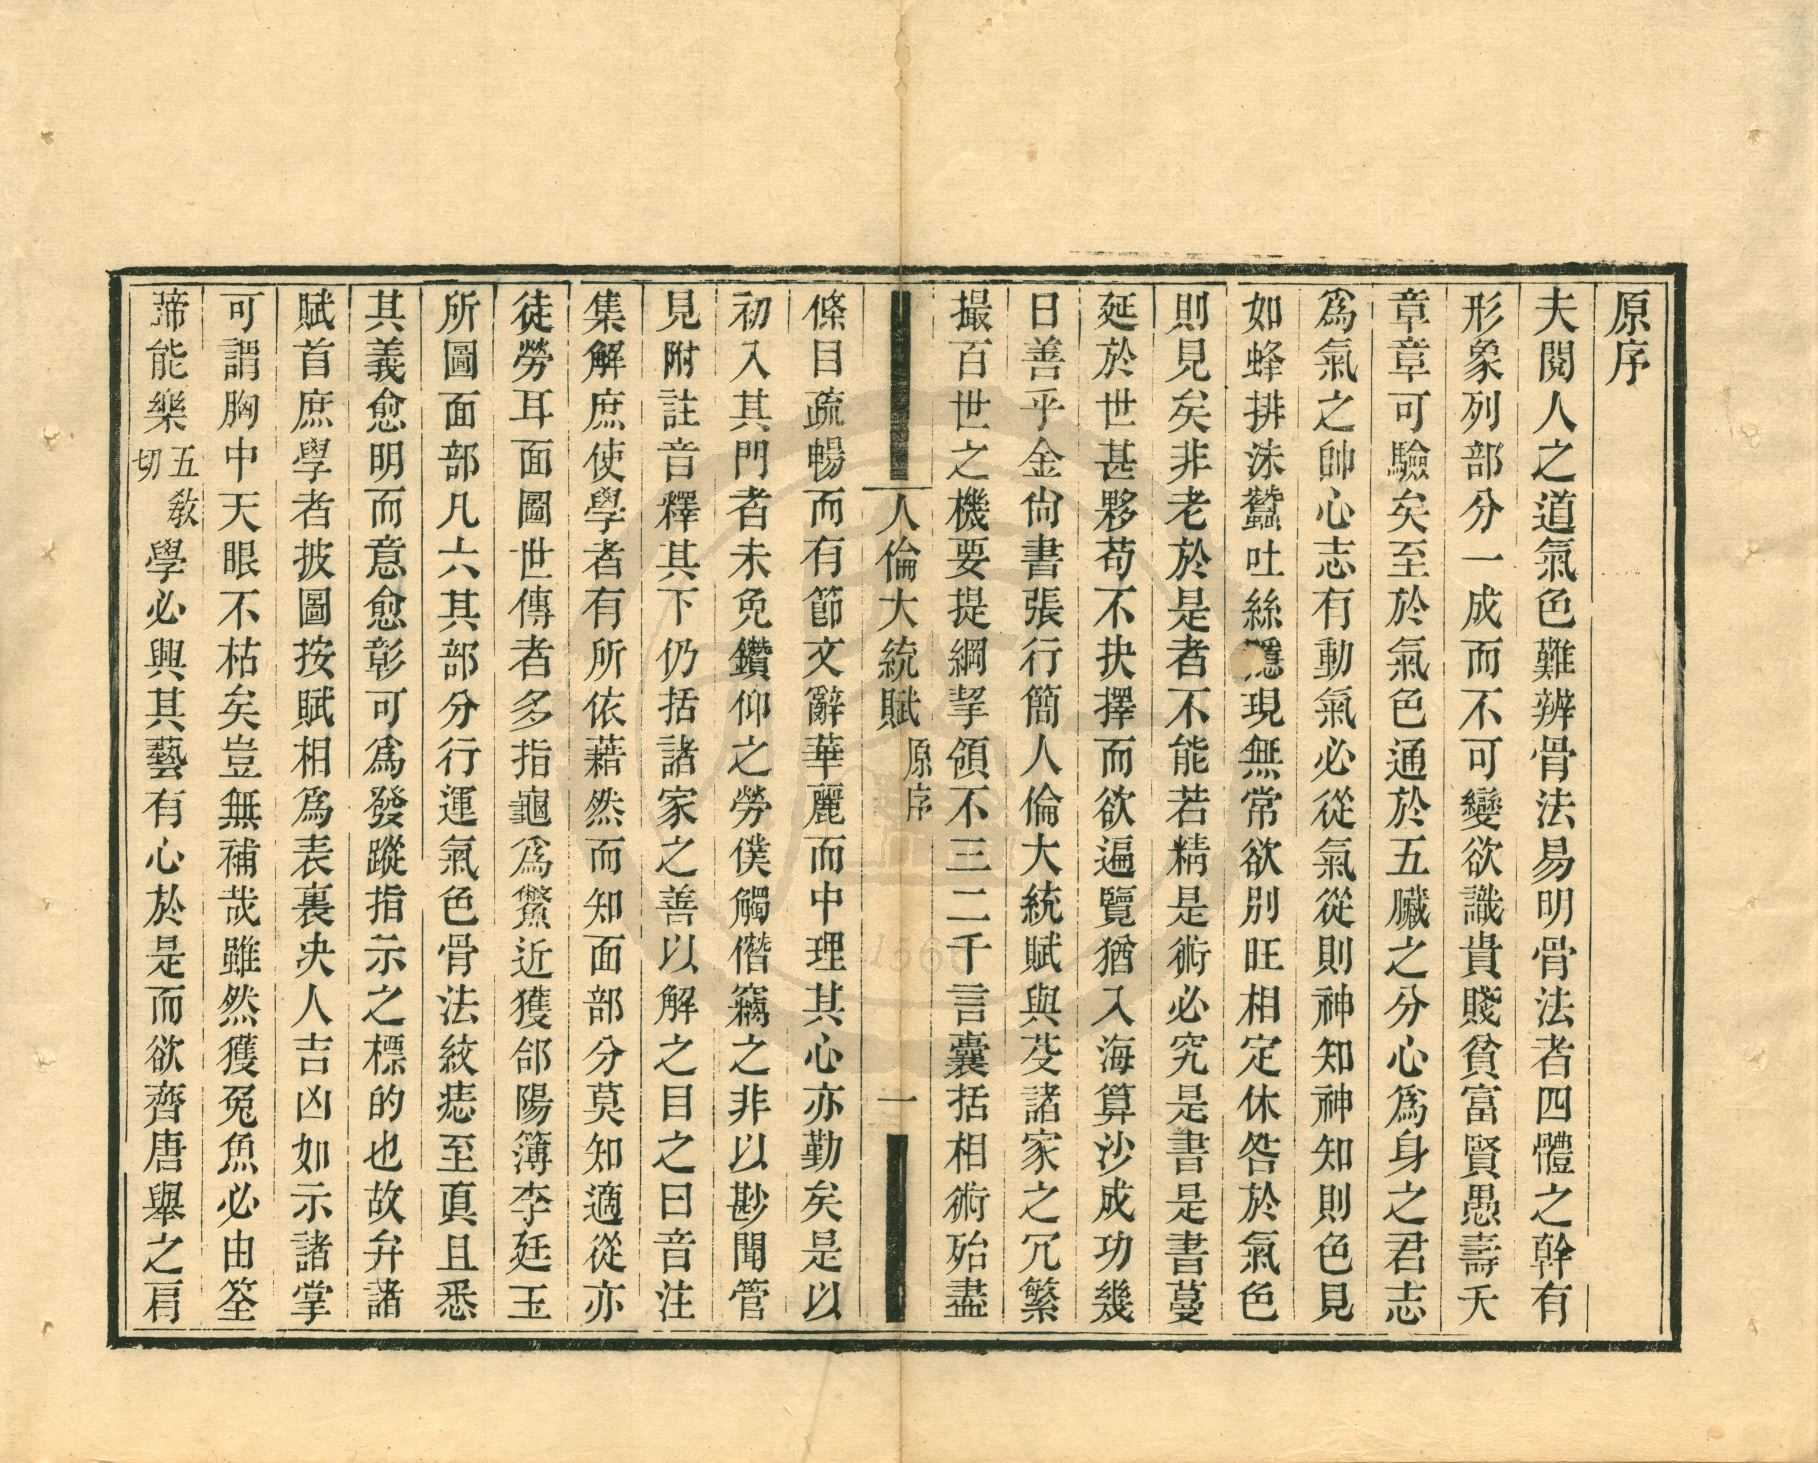 原序
夫閱人之道氣色難辨骨法易明骨法者四體之幹有
形象列部分一成而不可變欲識貴賤貧富賢愚壽夭
章章可驗矣至於氣色通於五臟之分心爲身之君志
爲氣之帥心志有動氣必從氣從則神知神知則色見
如蜂排洙蠶吐絲隱現無常欲別旺相定休咎於氣色
則見矣非老於是者不能若精是術必究是書是書蔓
延於世甚夥苟不抉擇而欲遍覽猶入海算沙成功幾
日善乎金尙書張行簡人倫大統賦與芟諸家之冗繁
撮百世之機要提綱挈領不三二千言囊括相術殆盡
人倫大統賦 原序 一
條目疏暢而有節文辭華麗而中理其心亦勤矣是以
初入其門者未免鑽仰之勞僕觸僭竊之非以尠聞管
見附註音釋其下仍括諸家之善以解之目之曰音注
集解庶使學者有所依藉然而知面部分莫知適從亦
徒勞耳面圖世傳者多指龜爲鱉近獲郃陽簿李廷玉
所圖面部凡六其部分行運氣色骨法紋痣至真且悉
其義愈明而意愈彰可爲發蹤指示之標的也故弁諸
賦首庶學者披圖按賦相爲表裏決人吉凶如示諸掌
可謂胸中天眼不枯矣豈無補哉雖然獲兔魚必由筌
蹄能樂五敎切學必興其藝有心於是而欲齊唐舉之肩